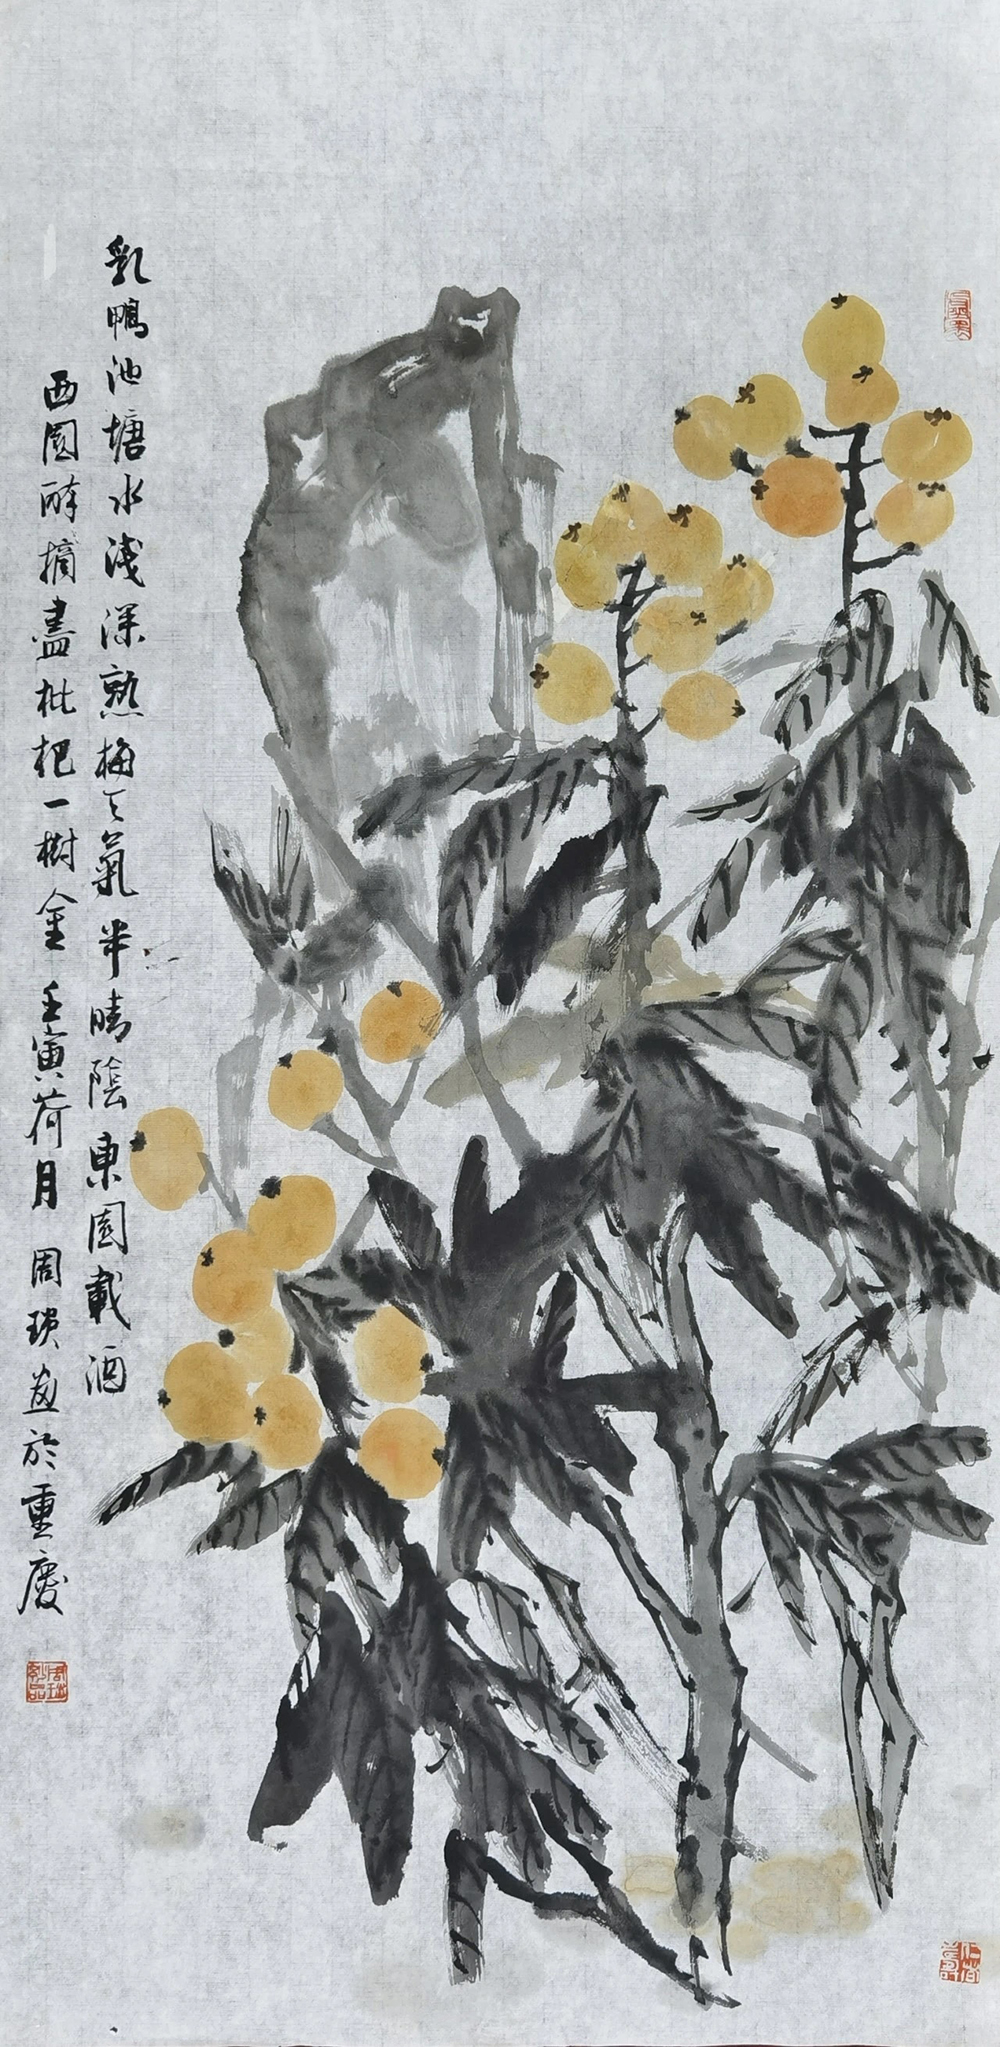 乳鴨池塘水浅深熟梅天氣半晴陰東園載酒
西園醉摘盡枇杷一樹金 壬寅荷月 周瑣画於重慶